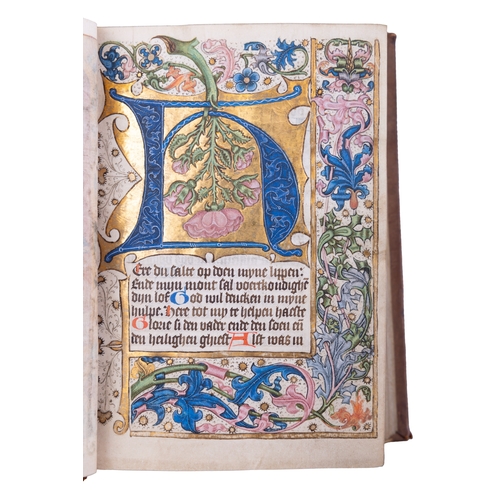 Here du salte op doen myne lippen:
Ende mijn mont sal voertkondighē
dijn lof God wil dencken in myne
hulpe. Here tot my te helpen haeste
Glorie si den vader ende den soen eñ
den heilighen ghiest Alst was in